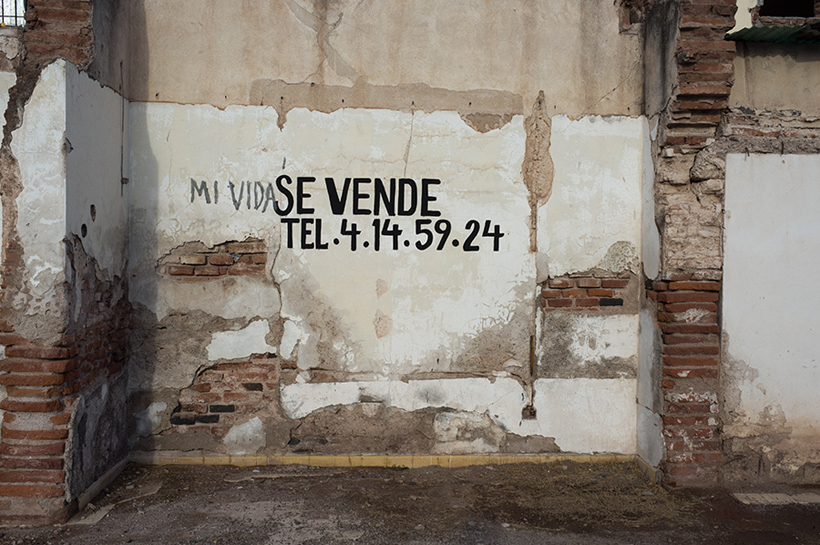 MI VIDA SE VENDE
TEL.4.14.59.24